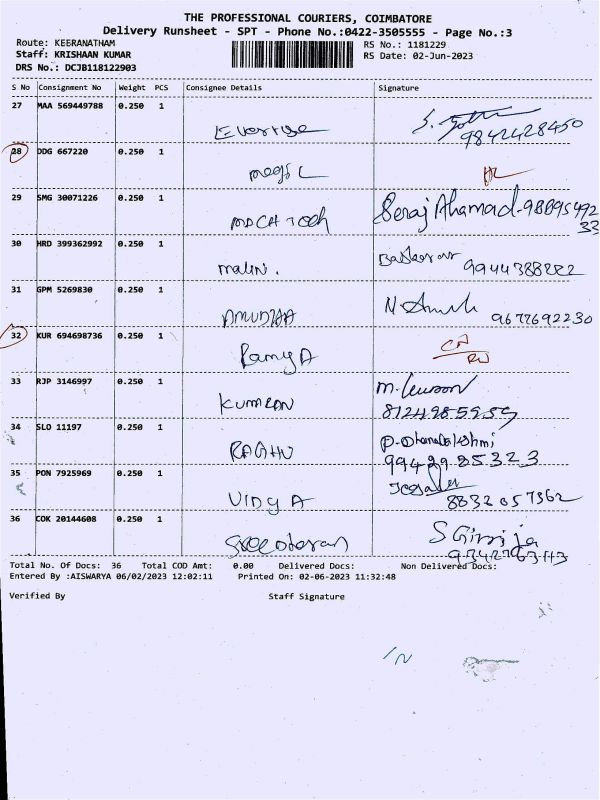 THE PROFESSIONAL COURIERS, COIMBATORE
Delivery Runsheet - SPT - Phone No.:0422-3505555 - Page No.:3
Route: KEERANATHAM
RS No.: 1181229
Staff: KRISHAAN KUMAR
RS Date: 02-Jun-2023
DRS No.: DCJB118122903
S No Consignment No Weight PCS Consignee Details Signature
27 MAA 569449788 0.250 1
9842428450
28 DDG 667220 0.250 1
29 SMG 30071226 0.250 1 Seraj Ahamad-
MDCH Tech
30 HRD 399362992 0.250 1
malini. 9944388222
31 GPM 5269830 0.250 1
AMUDHA 9677692230
32 KUR 694698736 0.250 1
Ramya
33 RJP 3146997 0.250 1
KUMARAN
34 SLO 11197 0.250 1 P. Dhanalakshmi
RAGHU 9942985323
35 PON 7925969 0.250 1
VIDYA 8832057362
36 COK 20144608 0.250 1 S Girija
Sreedharan
Total No. Of Docs: 36 Total COD Amt: 0.00 Delivered Docs: Non Delivered Docs:
Entered By :AISWARYA 06/02/2023 12:02:11 Printed On: 02-06-2023 11:32:48
Verified By Staff Signature